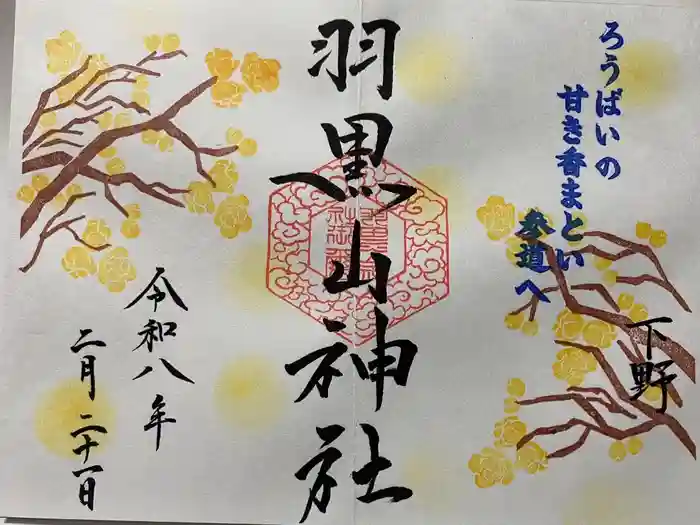 ろうばいの
甘き香まとい
参道へ
下野
羽黒山神社
令和八年
二月二十一日